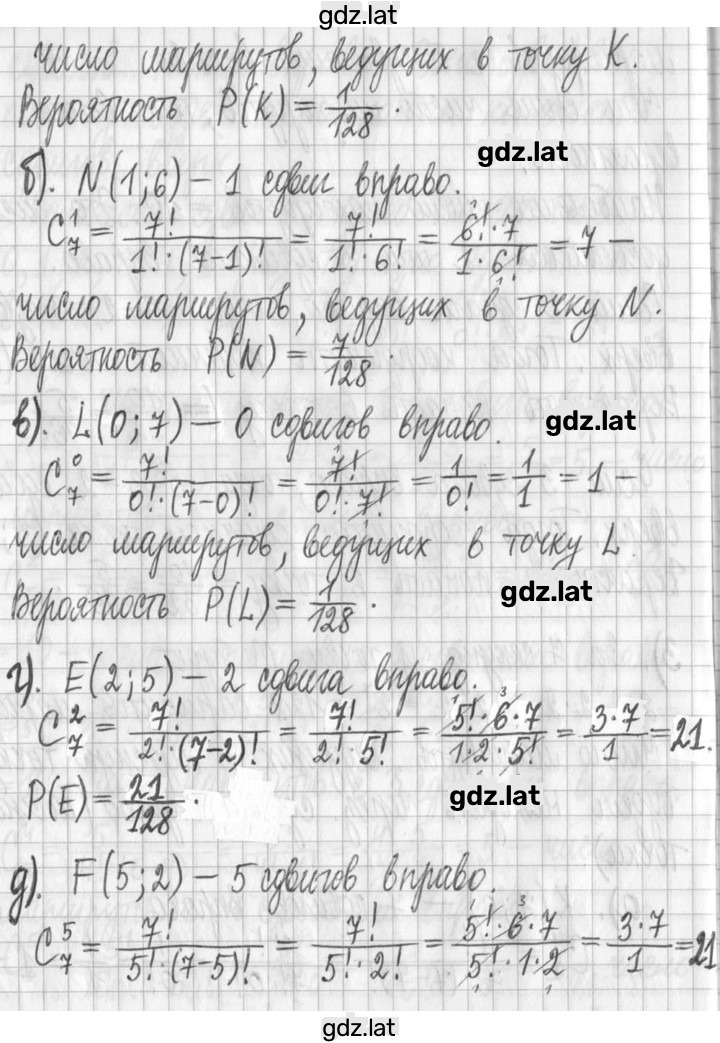 gdz.lat
число маршрутов, ведущих в точку K.
Вероятность P(K) = 1/128.
gdz.lat
б). N(1;6) – 1 сдвиг вправо.
C₇¹ = 7!/(1!·(7-1)!) = 7!/(1!·6!) = 6!·7/(1·6!) = 7 –
число маршрутов, ведущих в точку N.
Вероятность P(N) = 7/128.
в). L(0;7) – 0 сдвигов вправо.
gdz.lat
C₇⁰ = 7!/(0!·(7-0)!) = 7!/(0!·7!) = 1/0! = 1/1 = 1 –
число маршрутов, ведущих в точку L
gdz.lat
Вероятность P(L) = 1/128.
г). E(2;5) – 2 сдвига вправо.
C₇² = 7!/(2!·(7-2)!) = 7!/(2!·5!) = 5!·6·7/(1·2·5!) = 3·7/1 = 21.
P(E) = 21/128.
gdz.lat
д). F(5;2) – 5 сдвигов вправо.
C₇⁵ = 7!/(5!·(7-5)!) = 7!/(5!·2!) = 5!·6·7/(5!·1·2) = 3·7/1 = 21
gdz.lat